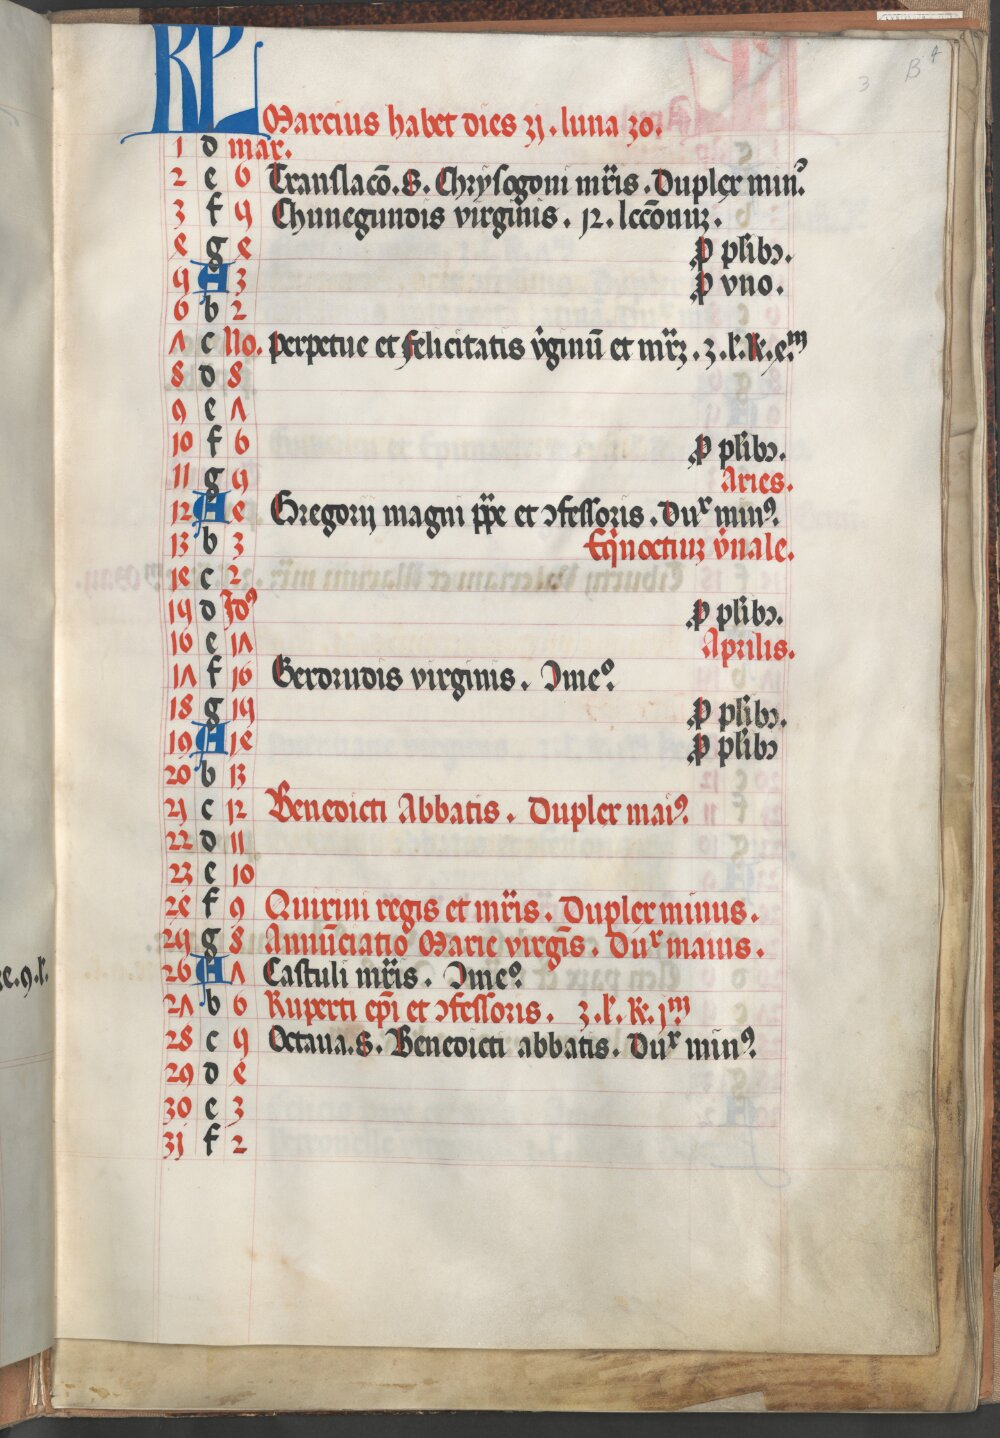 3 B 4
KL
Marcius habet dies 31. luna 30.
1 d mar.
2 e 6 Translacō. S. Chrysogoni mr̄is. Duplex minꝰ.
3 f 5 Chunegundis virginis. 12. lccōnuʒ.
4 g 4 ꝓ plibꝫ.
5 A 3 ꝓ vno.
6 b 2
7 c No. perpetue et felicitatis v̓ginū et mr̄ʒ. 3. l'. k. e.m
8 d 8
9 e 7
10 f 6 ꝓ plibꝫ.
11 g 5 Aries.
12 A 4 Gregorij magni pp̄e et ↄfessoris. Dux minꝰ.
13 b 3 Eq̓noctiuʒ v̓nale.
14 c 2
15 d Jdꝰ ꝓ plibꝫ.
16 e 17 Aprilis.
17 f 16 Gerdrudis virginis. Ↄmeꝰ.
18 g 15 ꝓ plibꝫ.
19 A 14 ꝓ plibꝫ
20 b 13
21 c 12 Benedicti Abbatis. Duplex maiꝰ.
22 d 11
23 e 10
24 f 9 Quirini regis et mr̄is. Duplex minus.
25 g 8 Annūciatio Marie virgīs. Dux maius.
26 A 7 Castuli mr̄is. Ↄmeꝰ.
27 b 6 Ruperti ep̄i et ↄfessoris. 3. l'. k. jm
28 c 5 Octaua. S. Benedicti abbatis. Dux minꝰ.
29 d 4
30 e 3
31 f 2